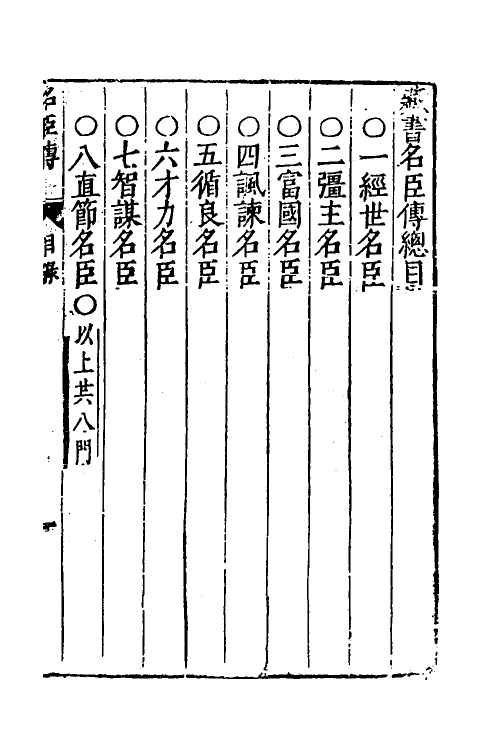 藏書名臣傳總目
○一經世名臣
○二彊主名臣
○三富國名臣
○四諷諫名臣
○五循良名臣
○六才力名臣
○七智謀名臣
○八直節名臣○以上共八門
名臣傳 目錄 一